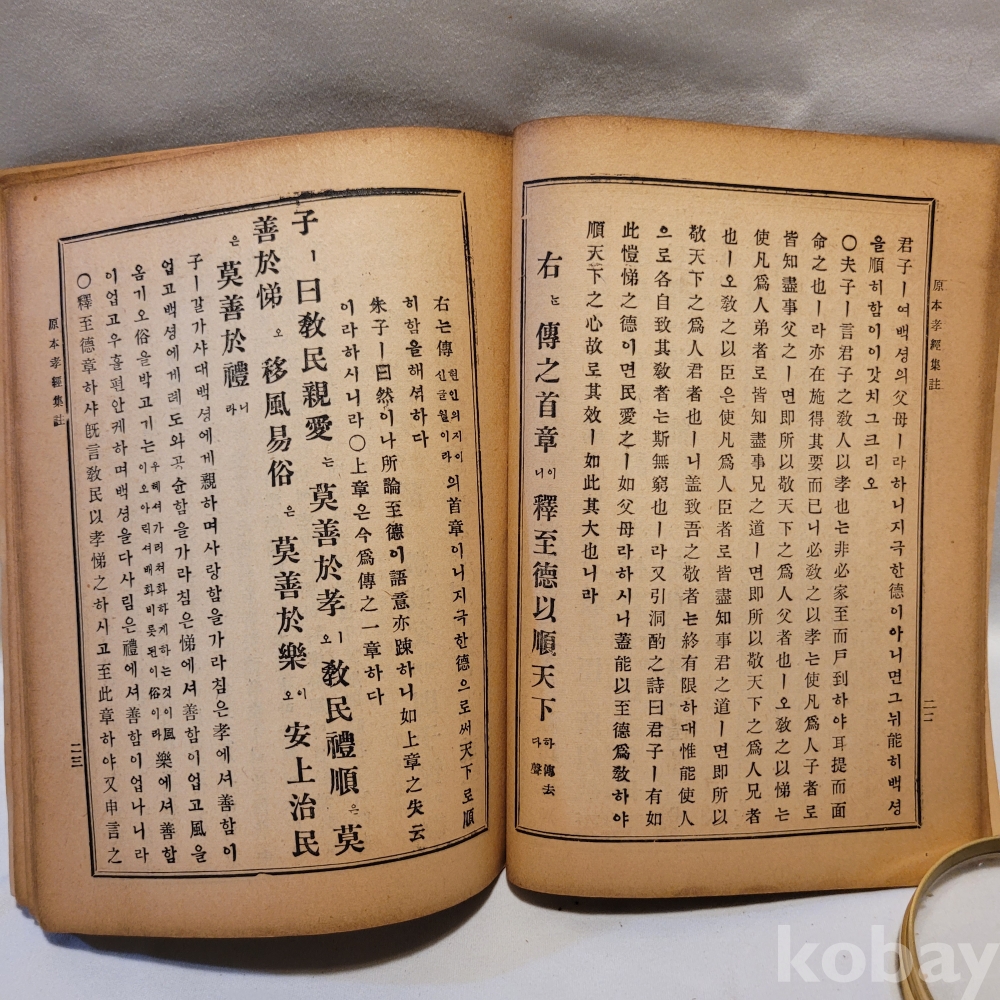 原本孝經集註
二二
君子ㅣ여백셩의父母ㅣ라하니지극한德이아니면그뉘能히백셩
을順히함이이갓치그크리오
〇夫子ㅣ言君子之敎人以孝也는非必家至而戶到하야耳提而面
命之也ㅣ라亦在施得其要而已니必敎之以孝는使凡爲人子者로
皆知盡事父之ㅣ면即所以敬天下之爲人父者也ㅣ오敎之以悌는
使凡爲人弟者로皆知盡事兄之道ㅣ면即所以敬天下之爲人兄者
也ㅣ오敎之以臣은使凡爲人臣者로皆盡知事君之道ㅣ면即所以
敬天下之爲人君者也ㅣ니盖致吾之敬者는終有限하대惟能使人
으로各自致其敬者는斯無窮也ㅣ라又引泂酌之詩曰君子ㅣ有如
此愷悌之德이면民愛之ㅣ如父母라하시니蓋能以至德爲敎하야
順天下之心故로其效ㅣ如此其大也니라
右는傳之首章이니釋至德以順天下하다 傳去聲
右는傳현인의지이신글월이라의首章이니지극한德으로써天下로順
히함을解셔하다
朱子ㅣ曰然이나所論至德이語意亦踈하니如上章之失云
이라하시니라〇上章은今爲傳之一章하다
子ㅣ曰敎民親愛는莫善於孝ㅣ오敎民禮順은莫
善於悌오移風易俗은莫善於樂이오安上治民
은莫善於禮니라
子ㅣ갈가샤대백셩에게親하며사랑함을가라침은孝에셔善함이
업고백셩에게례도와곳슌함을가라침은悌에셔善함이업고風을
우헤셔가러쳐화하게하는것이風이오아릭셔배화비릇된이俗이라
옴기오俗을박고기는樂에셔善함
이업고우흘편안케하며백셩을다사림은禮에셔善함이업나니라
〇釋至德章하샤旣言敎民以孝悌之하시고至此章하야又申言之
原本孝經集註
二三
kobay